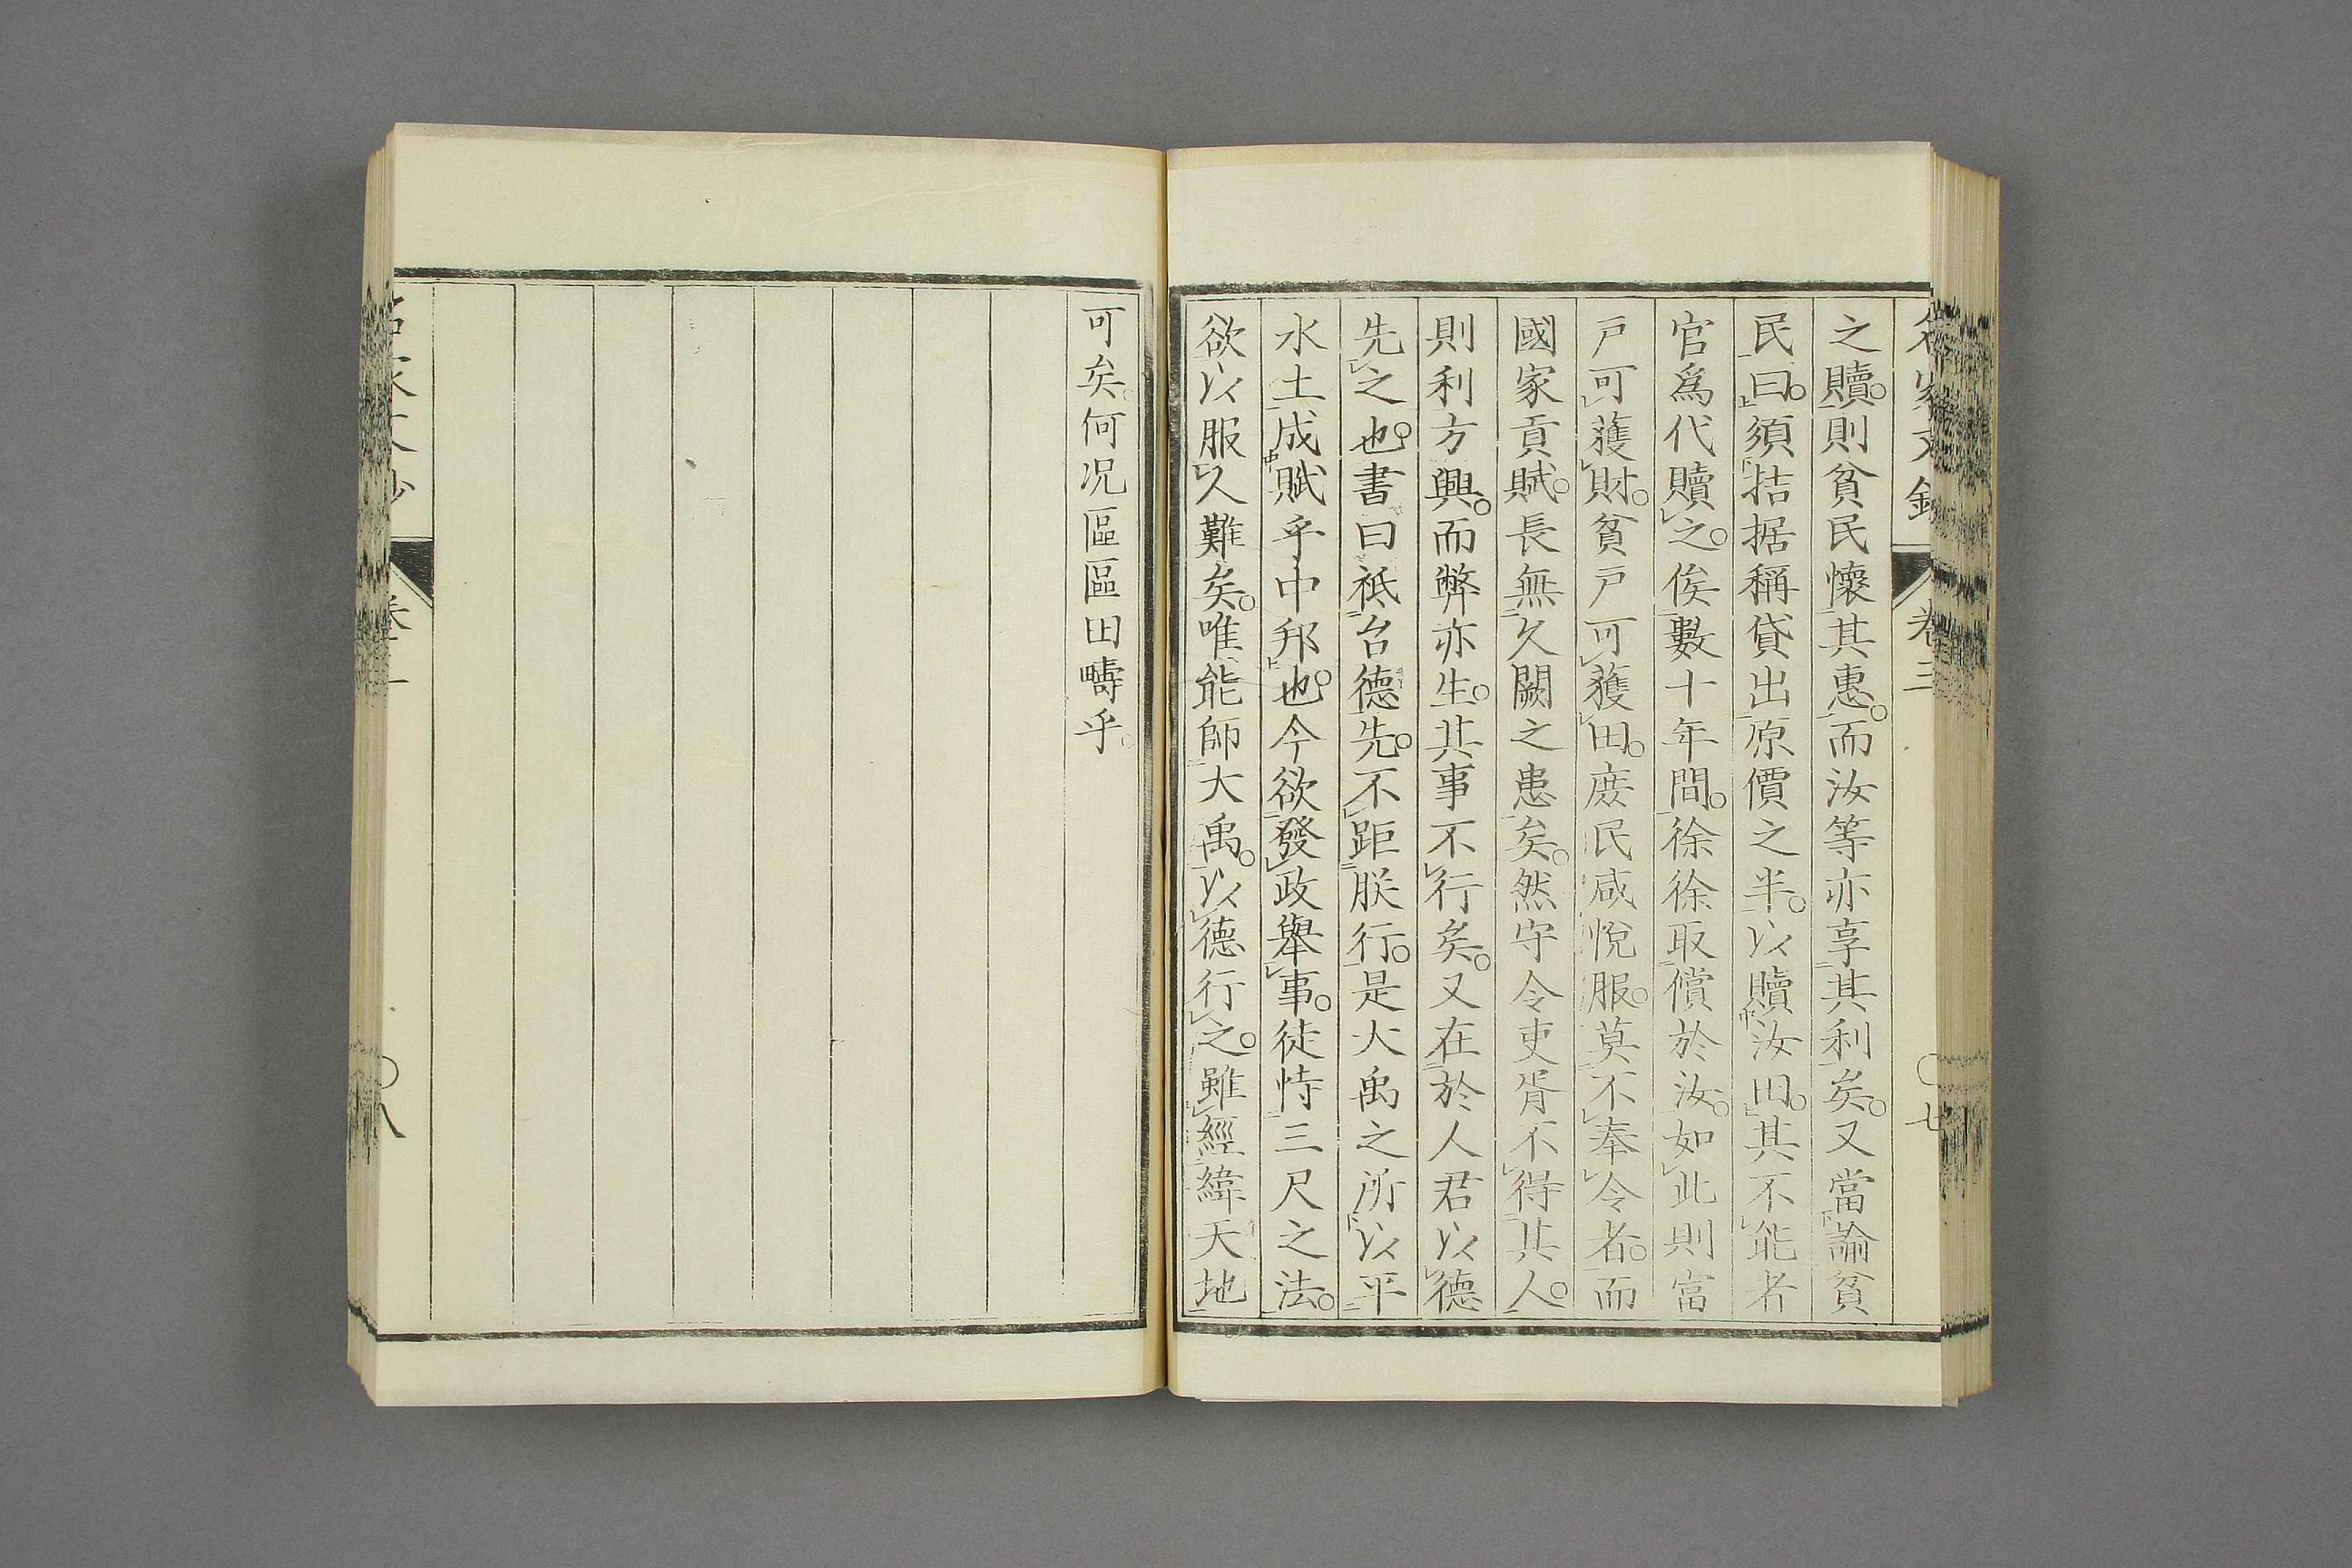 之贖。則貧民懷其惠。而汝等亦享其利矣。又當論貧
民曰。須拮据稱貸出原價之半。以贖汝田。其不能者
官爲代贖之。俟數十年間。徐徐取償於汝。如此則富
戸可獲財。貧戸可獲田。庶民咸悅服。莫不奉令者。而
國家貢賦。長無久闕之患矣。然守令吏胥不得其人。
則利方興。而弊亦生。其事不行矣。又在於人君以德
先之也。書曰祗台德先。不距朕行。是大禹之所以平
水土成賦乎中邦也。今欲發政舉事。徒恃三尺之法。
欲以服人難矣。唯能師大禹。以德行之。雖經緯天地
可矣。何況區區田疇乎。
卷三
七
八